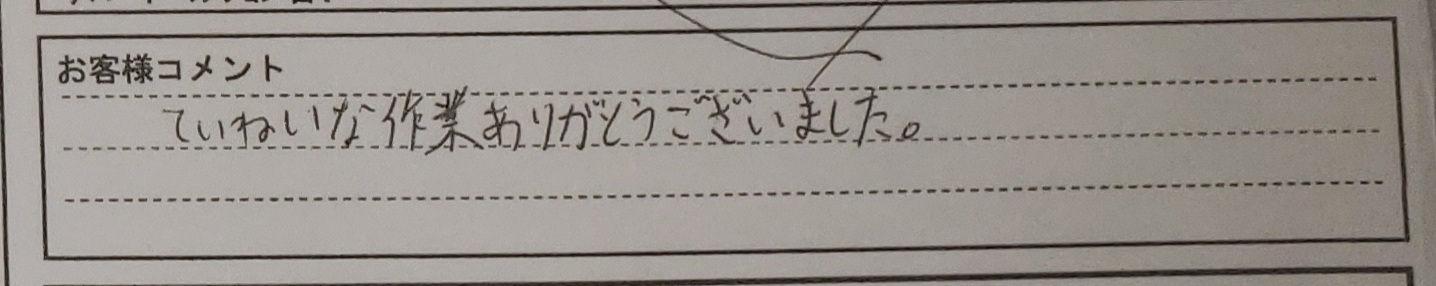 お客様コメント
ていねいな作業ありがとうございました。